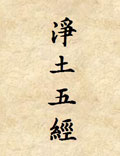 淨土五經